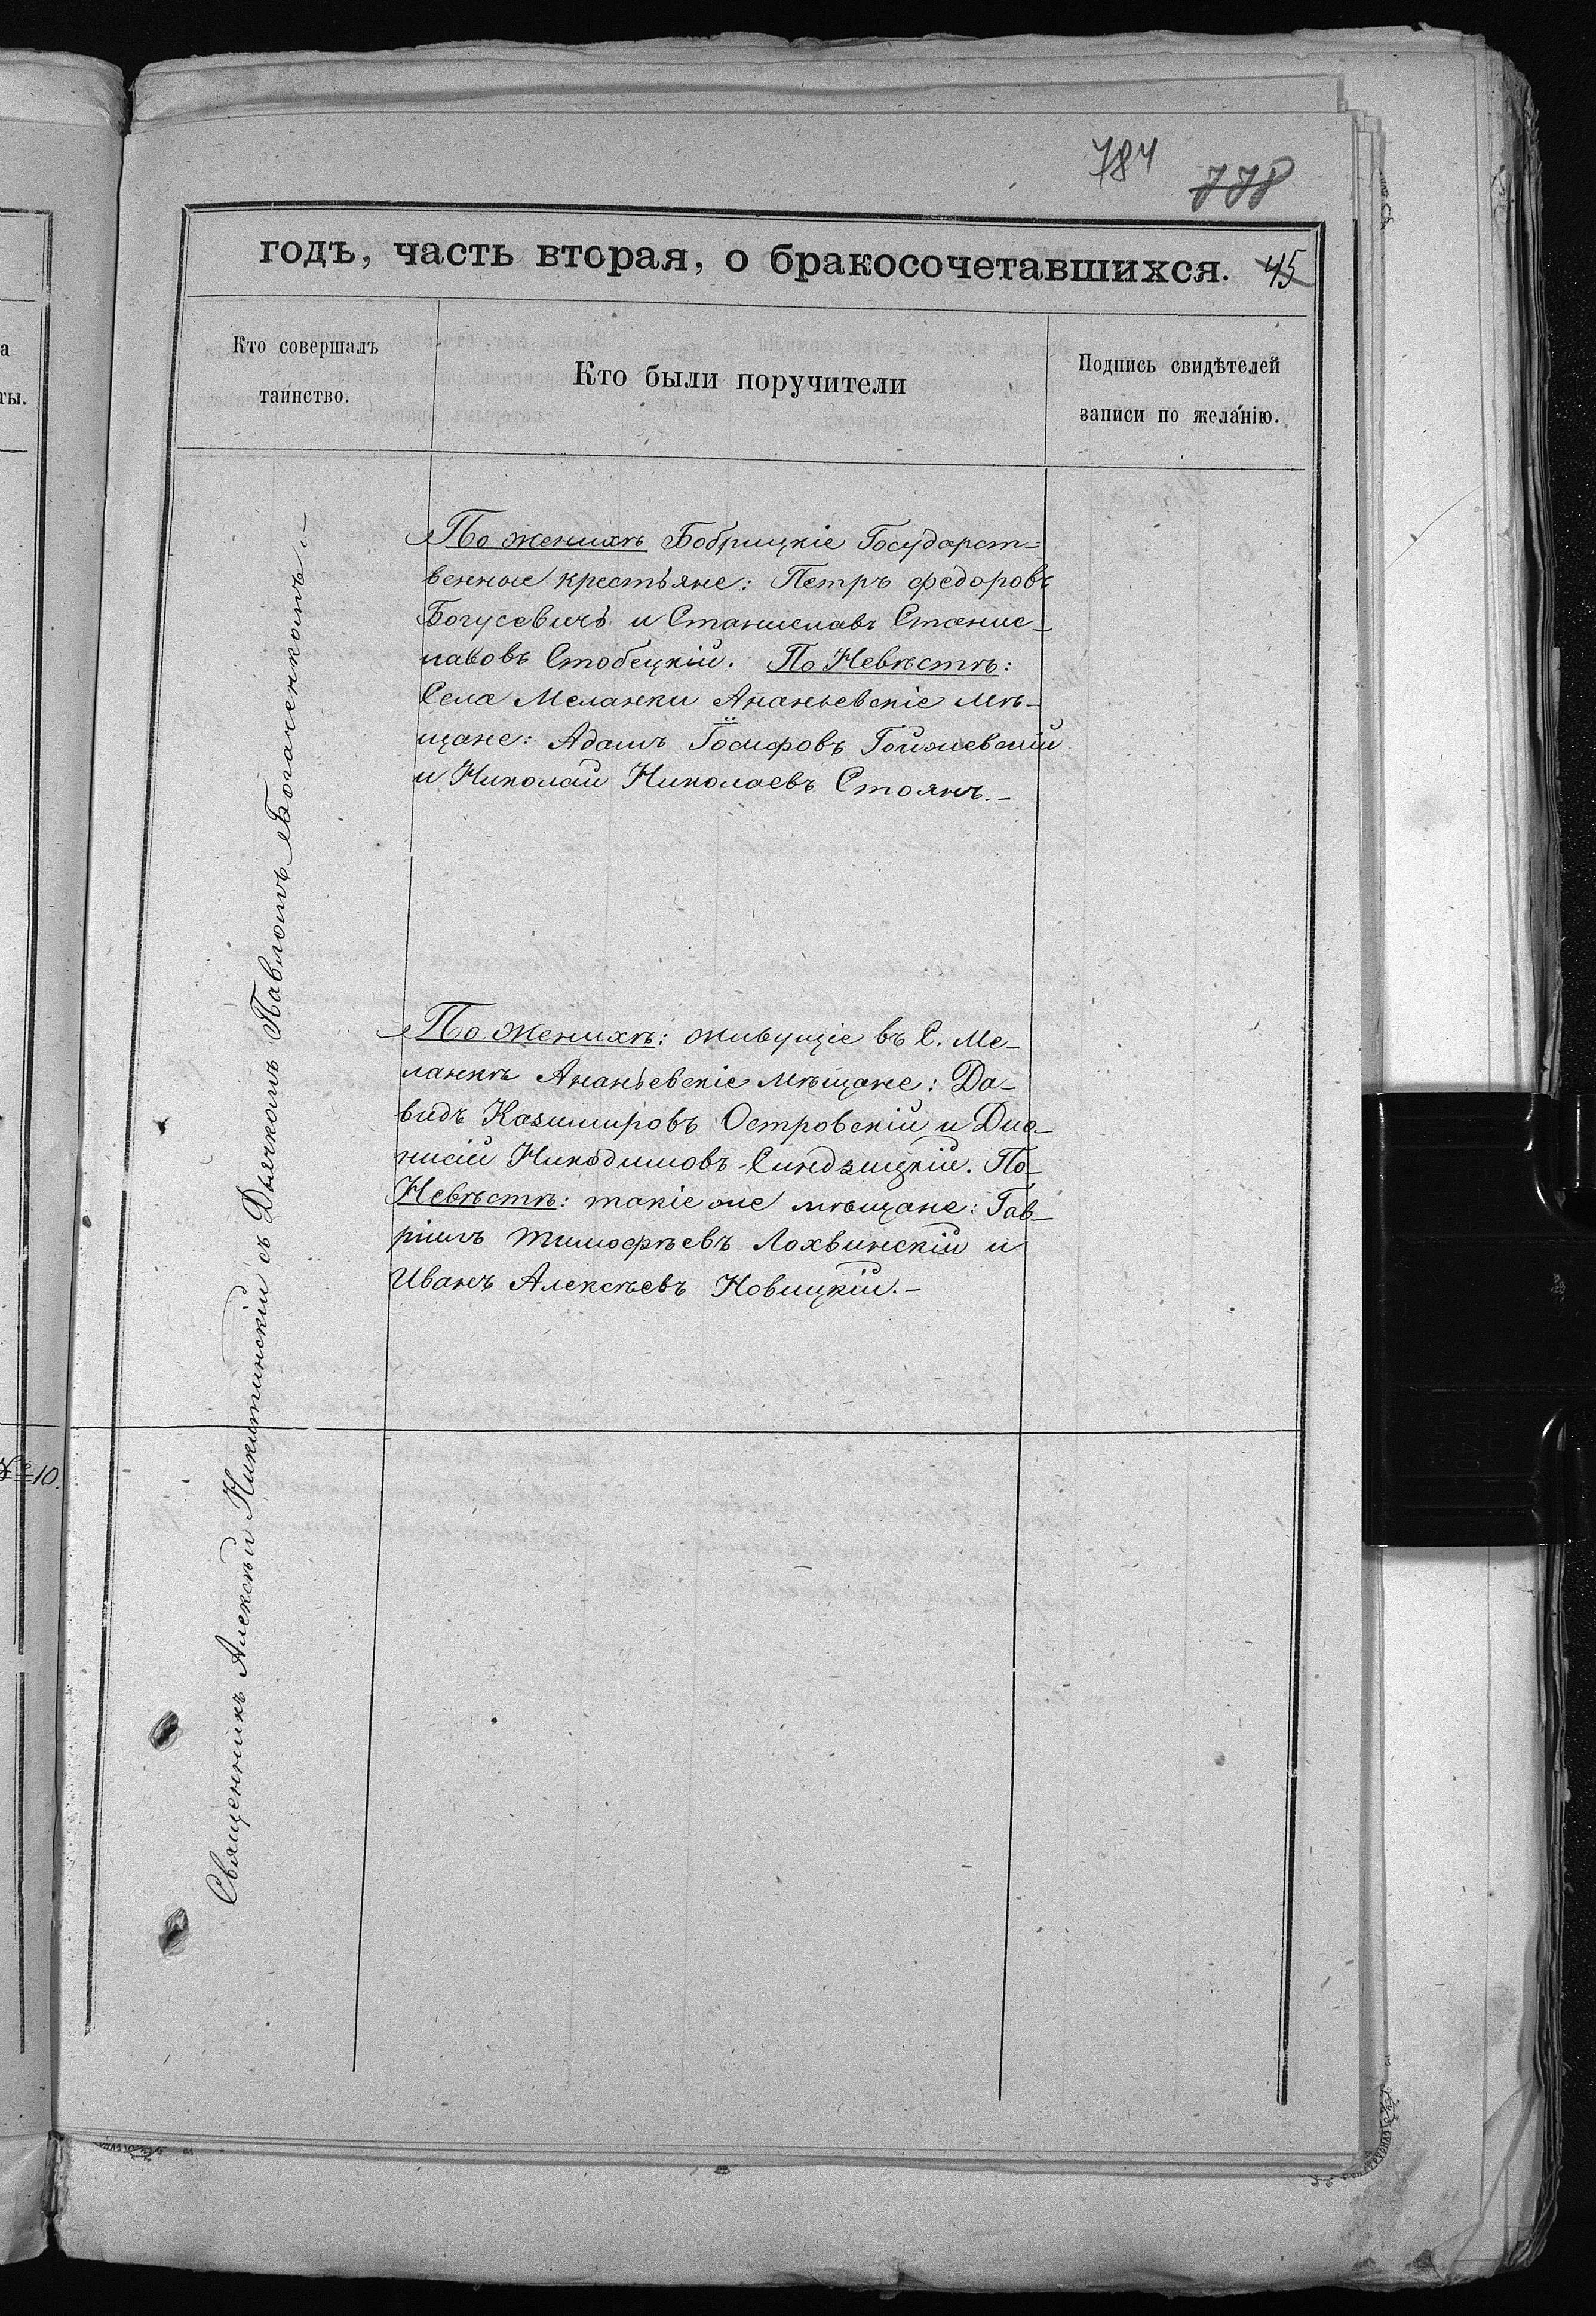 784
778
годъ, часть вторая, о бракосочетавшихся. 45
Кто совершалъ
таинство.
Кто были поручители
Подпись свидѣтелей
записи по желанію.
Священникъ Алексѣй Никитинскій съ Дьячкомъ Павломъ Богаченкомъ.–
По женихѣ Бобрицкіе Государст=
венные крестьяне: Петръ Федоровъ
Богусевичъ и Станиславъ Станис–
лавовъ Стобецкій. По Невѣстѣ:
Села Меланки Ананьевскіе Мѣ–
щане: Адамъ Іосифовъ
и Николай Николаевъ Стоянъ.–
По женихѣ: живущіе въ С. Ме–
ланкѣ Ананьевскіе мѣщане: Да–
видъ Казимировъ Островскій и Діо–
нисій Никодимовъ Синдзицкій. По–
Невѣстѣ: такіе же мѣщане: Гав–
ріилъ Тимофѣевъ Лохвинскій и
Иванъ Алексѣевъ Новицкій.–
а
ты.
№10.